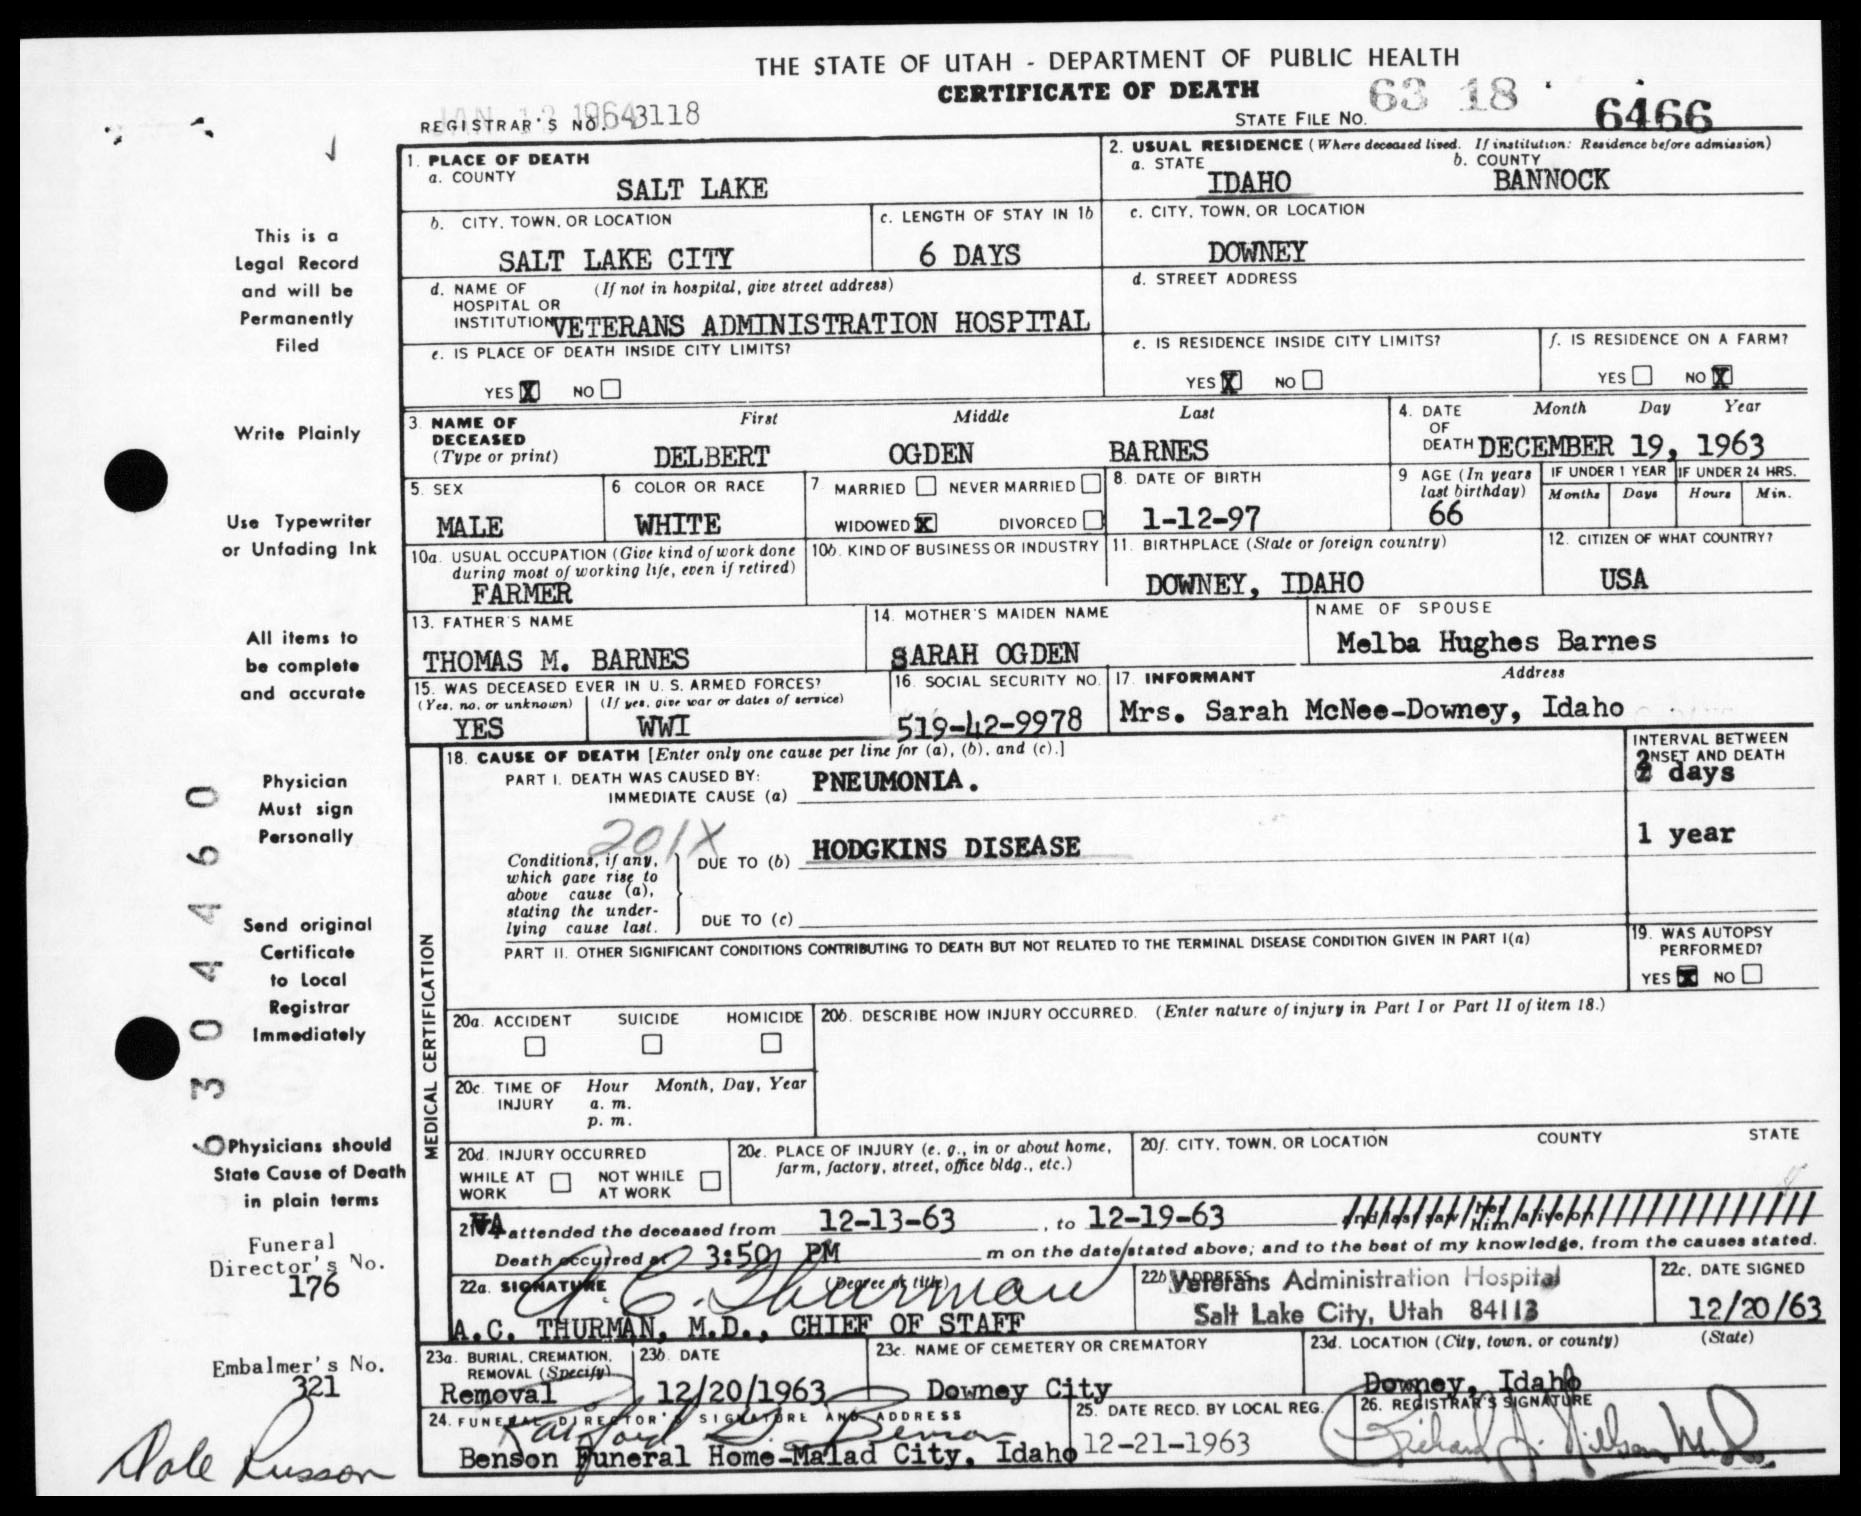 THE STATE OF UTAH - DEPARTMENT OF PUBLIC HEALTH
CERTIFICATE OF DEATH
JAN 13 1964
REGISTRAR'S NO. 3118
STATE FILE NO. 63 18 6466
1. PLACE OF DEATH
a. COUNTY
SALT LAKE
2. USUAL RESIDENCE (Where deceased lived. If institution: Residence before admission)
a. STATE
IDAHO
b. COUNTY
BANNOCK
b. CITY, TOWN, OR LOCATION
SALT LAKE CITY
c. LENGTH OF STAY IN 1b
6 DAYS
c. CITY, TOWN, OR LOCATION
DOWNEY
d. NAME OF HOSPITAL OR INSTITUTION
(If not in hospital, give street address)
VETERANS ADMINISTRATION HOSPITAL
d. STREET ADDRESS
e. IS PLACE OF DEATH INSIDE CITY LIMITS?
YES X NO
e. IS RESIDENCE INSIDE CITY LIMITS?
YES X NO
f. IS RESIDENCE ON A FARM?
YES NO X
3. NAME OF DECEASED
(Type or print)
First Middle Last
DELBERT OGDEN BARNES
4. DATE OF DEATH
Month Day Year
DECEMBER 19, 1963
5. SEX
MALE
6 COLOR OR RACE
WHITE
7. MARRIED NEVER MARRIED
WIDOWED X DIVORCED
8. DATE OF BIRTH
1-12-97
9 AGE (In years last birthday)
66
IF UNDER 1 YEAR
Months Days
IF UNDER 24 HRS.
Hours Min.
10a. USUAL OCCUPATION (Give kind of work done during most of working life, even if retired)
FARMER
10b. KIND OF BUSINESS OR INDUSTRY
11. BIRTHPLACE (State or foreign country)
DOWNEY, IDAHO
12. CITIZEN OF WHAT COUNTRY?
USA
13. FATHER'S NAME
THOMAS M. BARNES
14. MOTHER'S MAIDEN NAME
SARAH OGDEN
NAME OF SPOUSE
Melba Hughes Barnes
15. WAS DECEASED EVER IN U. S. ARMED FORCES?
(Yes, no, or unknown) (If yes, give war or dates of service)
YES WWI
16. SOCIAL SECURITY NO.
519-42-9978
17. INFORMANT Address
Mrs. Sarah McNee-Downey, Idaho
MEDICAL CERTIFICATION
18. CAUSE OF DEATH [Enter only one cause per line for (a), (b), and (c).]
PART I. DEATH WAS CAUSED BY:
IMMEDIATE CAUSE (a) PNEUMONIA.
INTERVAL BETWEEN ONSET AND DEATH
2 days
201X
Conditions, if any, which gave rise to above cause (a), stating the underlying cause last.
DUE TO (b) HODGKINS DISEASE
1 year
DUE TO (c)
PART II. OTHER SIGNIFICANT CONDITIONS CONTRIBUTING TO DEATH BUT NOT RELATED TO THE TERMINAL DISEASE CONDITION GIVEN IN PART I(a)
19. WAS AUTOPSY PERFORMED?
YES X NO
20a. ACCIDENT SUICIDE HOMICIDE
20b. DESCRIBE HOW INJURY OCCURRED. (Enter nature of injury in Part I or Part II of item 18.)
20c. TIME OF INJURY
Hour Month, Day, Year
a. m.
p. m.
20d. INJURY OCCURRED
WHILE AT WORK NOT WHILE AT WORK
20e. PLACE OF INJURY (e. g., in or about home, farm, factory, street, office bldg., etc.)
20f. CITY, TOWN, OR LOCATION COUNTY STATE
21. VA attended the deceased from 12-13-63, to 12-19-63 and last saw her him alive on
Death occurred at 3:50 PM m on the date stated above; and to the best of my knowledge, from the causes stated.
22a. SIGNATURE (Degree or title)
A. C. Thurman
A.C. THURMAN, M.D., CHIEF OF STAFF
22b. ADDRESS
Veterans Administration Hospital
Salt Lake City, Utah 84113
22c. DATE SIGNED
12/20/63
23a. BURIAL, CREMATION, REMOVAL (Specify)
Removal
23b. DATE
12/20/1963
23c. NAME OF CEMETERY OR CREMATORY
Downey City
23d. LOCATION (City, town, or county) (State)
Downey, Idaho
24. FUNERAL DIRECTOR'S SIGNATURE AND ADDRESS
Benson
Benson Funeral Home-Malad City, Idaho
25. DATE RECD. BY LOCAL REG.
12-21-1963
26. REGISTRAR'S SIGNATURE
Richard J. Nielson M.D.
This is a
Legal Record
and will be
Permanently
Filed
Write Plainly
Use Typewriter
or Unfading Ink
All items to
be complete
and accurate
Physician
Must sign
Personally
Send original
Certificate
to Local
Registrar
Immediately
Physicians should
State Cause of Death
in plain terms
6304460
Funeral
Director's No.
176
Embalmer's No.
321
Dale Russon